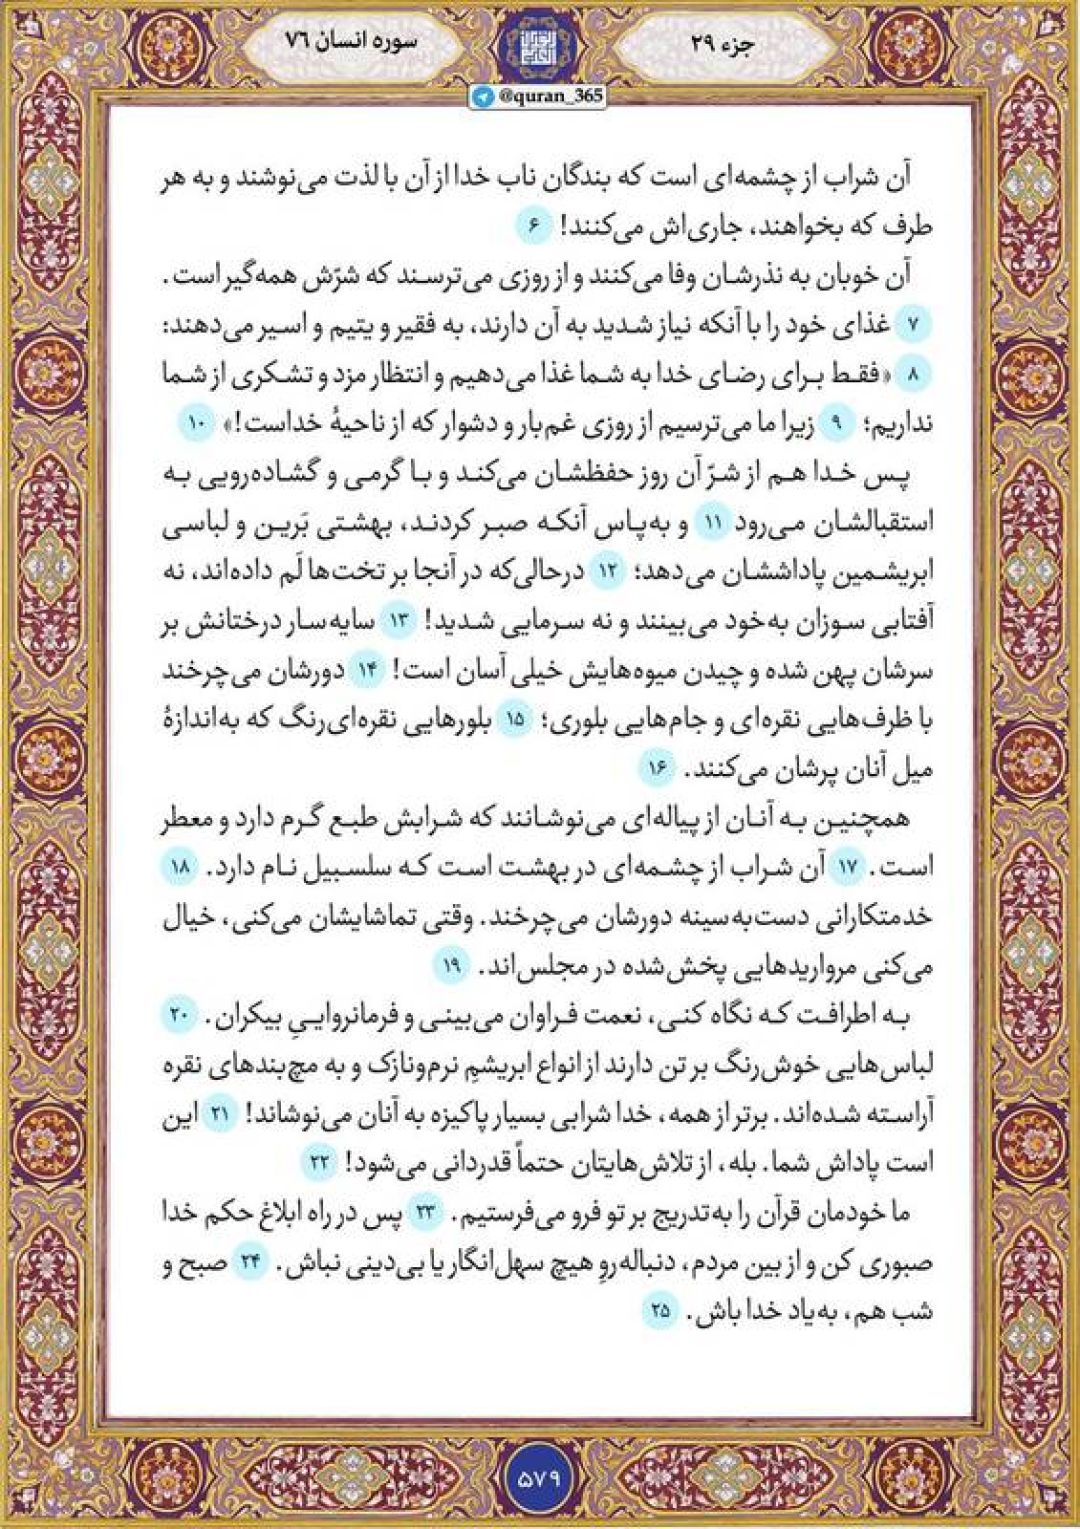 جزء ۲۹
سوره انسان ۷۶
@quran_365
آن شراب از چشمه‌ای است که بندگان ناب خدا از آن با لذت می‌نوشند و به هر
طرف که بخواهند، جاری‌اش می‌کنند! ۶
آن خوبان به نذرشان وفا می‌کنند و از روزی می‌ترسند که شرّش همه‌گیر است.
۷ غذای خود را با آنکه نیاز شدید به آن دارند، به فقیر و یتیم و اسیر می‌دهند:
۸ «فقط برای رضای خدا به شما غذا می‌دهیم و انتظار مزد و تشکری از شما
نداریم؛ ۹ زیرا ما می‌ترسیم از روزی غم‌بار و دشوار که از ناحیهٔ خداست!» ۱۰
پس خدا هم از شرّ آن روز حفظشان می‌کند و با گرمی و گشاده‌رویی به
استقبالشان می‌رود ۱۱ و به‌پاس آنکه صبر کردند، بهشتی بَرین و لباسی
ابریشمین پاداششان می‌دهد؛ ۱۲ درحالی‌که در آنجا بر تخت‌ها لَم داده‌اند، نه
آفتابی سوزان به‌خود می‌بینند و نه سرمایی شدید! ۱۳ سایه‌سار درختانش بر
سرشان پهن شده و چیدن میوه‌هایش خیلی آسان است! ۱۴ دورشان می‌چرخند
با ظرف‌هایی نقره‌ای و جام‌هایی بلوری؛ ۱۵ بلورهایی نقره‌ای‌رنگ که به‌اندازهٔ
میل آنان پرشان می‌کنند. ۱۶
همچنین به آنان از پیاله‌ای می‌نوشانند که شرابش طبع گرم دارد و معطر
است. ۱۷ آن شراب از چشمه‌ای در بهشت است که سلسبیل نام دارد. ۱۸
خدمتکارانی دست‌به‌سینه دورشان می‌چرخند. وقتی تماشایشان می‌کنی، خیال
می‌کنی مرواریدهایی پخش‌شده در مجلس‌اند. ۱۹
به اطرافت که نگاه کنی، نعمت فراوان می‌بینی و فرمانرواییِ بیکران. ۲۰
لباس‌هایی خوش‌رنگ بر تن دارند از انواع ابریشمِ نرم‌ونازک و به مچ‌بندهای نقره
آراسته شده‌اند. برتر از همه، خدا شرابی بسیار پاکیزه به آنان می‌نوشاند! ۲۱ این
است پاداش شما. بله، از تلاش‌هایتان حتماً قدردانی می‌شود! ۲۲
ما خودمان قرآن را به‌تدریج بر تو فرو می‌فرستیم. ۲۳ پس در راه ابلاغ حکم خدا
صبوری کن و از بین مردم، دنباله‌روِ هیچ سهل‌انگار یا بی‌دینی نباش. ۲۴ صبح و
شب هم، به‌یاد خدا باش. ۲۵
۵۷۹